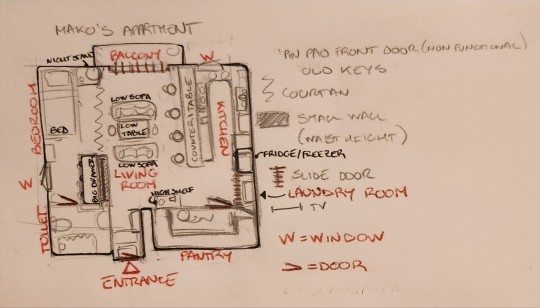 MAKO'S APARTMENT
BALCONY
W
NIGHTSTAND
BEDROOM
BED
LOW SOFA
LOW TABLE
LOW SOFA
COUNTER/TABLE
KITCHEN
LIVING ROOM
BIG DRAWER
HIGH SHELF
W
TOILET
PANTRY
ENTRANCE
PIN PAD FRONT DOOR (NON FUNCTIONAL)
OLD KEYS
COURTAIN
SMALL WALL
(WAIST HEIGHT)
FRIDGE/FREEZER
SLIDE DOOR
LAUNDRY ROOM
TV
W = WINDOW
> = DOOR